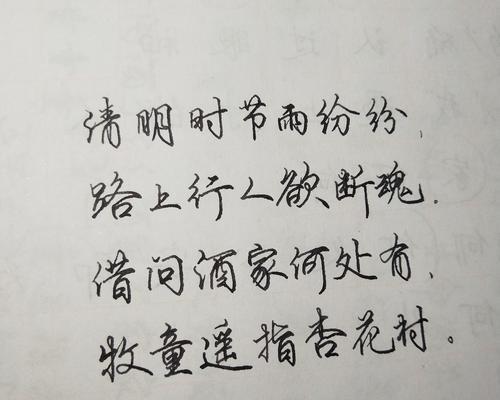 清明时节雨纷纷,
路上行人欲断魂.
借问酒家何处有,
牧童遥指杏花村。